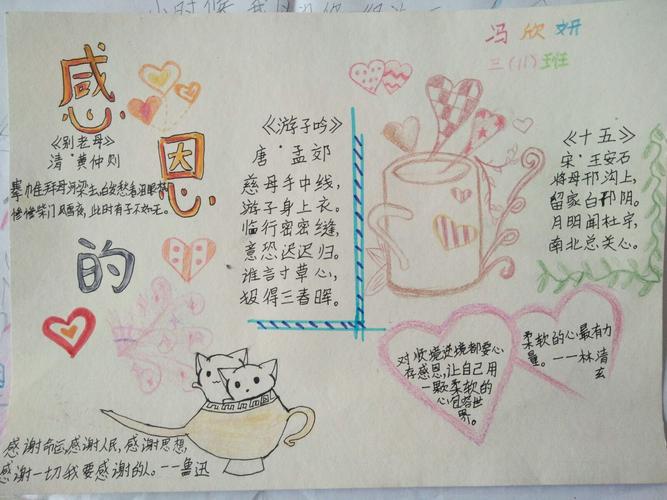 冯欣妍
三（11）班
感
恩
的
《别老母》
清·黄仲则
搴帷拜母河梁去，白发愁看泪眼枯。
惨惨柴门风雪夜，此时有子不如无。
《游子吟》
唐·孟郊
慈母手中线，
游子身上衣。
临行密密缝，
意恐迟迟归。
谁言寸草心，
报得三春晖。
《十五》
宋·王安石
将母邗沟上，
留家白邗阴。
月明闻杜宇，
南北总关心。
对顺境逆境都要心
存感恩，让自己用
一颗柔软的
心包容世
界。
柔软的心最有力
量。——林清
玄
感谢命运，感谢人民，感谢思想，
感谢一切我要感谢的人。——鲁迅